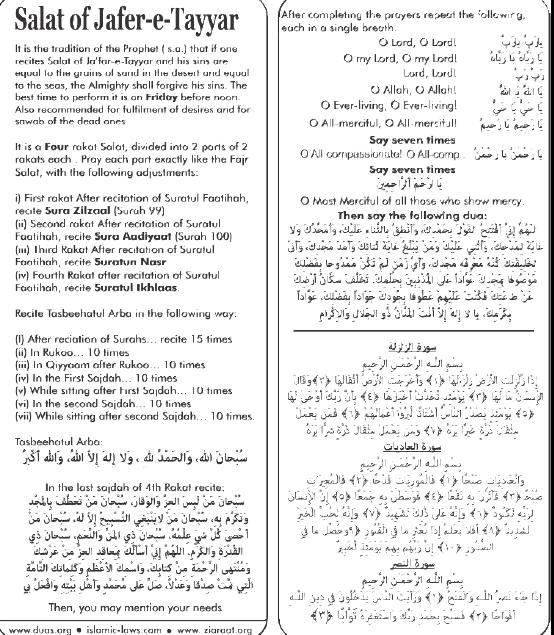 Salat of Jafer-e-Tayyar
It is the tradition of the Prophet ( s.a.) that if one
recites Salat of Ja'far-e-Tayyar and his sins are
equal to the grains of sand in the desert and equal
to the seas, the Almighty shall forgive his sins. The
best time to perform it is on Friday before noon.
Also recommended for fulfilment of desires and for
sawab of the dead ones
It is a Four rakat Salat, divided into 2 parts of 2
rakats each . Pray each part exactly like the Fajr
Salat, with the following adjustments:
i) First rakat After recitation of Suratul Faatihah,
recite Sura Zilzaal (Surah 99)
(ii) Second rakat After recitation of Suratul
Faatihah, recite Sura Aadiyaat (Surah 100)
(iii) Third Rakat After recitation of Suratul
Faatihah, recite Suratun Nasr
(iv) Fourth Rakat after recitation of Suratul
Faatihah, recite Suratul Ikhlaas.
Recite Tasbeehatul Arba in the following way:
(I) After reciation of Surahs... recite 15 times
(ii) In Rukoo... 10 times
(iii) In Qiyyaam after Rukoo... 10 times
(iv) In the First Sajdah... 10 times
(v) While sitting after First Sajdah... 10 times
(vi) In the second Sajdah... 10 times
(vii) While sitting after second Sajdah... 10 times.
Tasbeehatul Arba:
سُبْحانَ الله، وَالحَمْدُ لله ، وَلا إلهَ إلاَّ الله، وَالله أَكْبَرُ
In the last sajdah of 4th Rakat recite:
سُبْحانَ مَنْ لَبِسَ العِزَّ وَالوَقارَ، سُبْحانَ مَنْ تَعَطَّفَ بِالمَجْدِ
وَتَكَرَّمَ بِهِ، سُبْحانَ مَنْ لايَنْبَغِي التَّسْبِيحُ إلاَّ لَهُ، سُبْحانَ مَنْ
أَحْصى كُلَّ شَيْءٍ عِلْمُهُ، سُبْحانَ ذِي المَنِّ وَالنِّعَمِ، سُبْحانَ ذِي
القُدْرَةِ وَالكَرَمِ. اللهُمَّ إنِّي أَسْأَلُكَ بِمَعاقِدِ العِزِّ مِنْ عَرْشِكَ
وَمُنْتَهى الرَّحْمَةِ مِنْ كِتابِكَ، وَاسْمِكَ الأَعْظَمِ وَكَلِماتِكَ التَّامَّةِ
الَّتِي تَمَّتْ صِدْقًا وَعَدْلاً، صَلِّ عَلى مُحَمَّدٍ وَأَهْلِ بَيْتِهِ وَافْعَلْ بِي
Then, you may mention your needs
www.duas.org • islamic-laws.com • www. ziaraat.org
After completing the prayers repeat the following,
each in a single breath.
O Lord, O Lord! يارَبِّ يارَبِّ
O my Lord, O my Lord! يَا رَبَّاهُ يَا رَبَّاهُ
Lord, Lord! رَبِّ رَبِّ
O Allah, O Allah! يَا اللهُ يَا اللهُ
O Ever-living, O Ever-living! يَا حَيُّ يَا حَيُّ
O All-merciful, O All-merciful! يَا رَحِيمُ يَا رَحِيمُ
Say seven times
O All compassionate! O All-comp.. يَا رَحْمٰنُ يَا رَحْمٰنُ
Say seven times
يَا أَرْحَمَ الرَّاحِمِينَ
O Most Merciful of all those who show mercy.
Then say the following dua:
اللهُمَّ إنِّي أَفْتَتِحُ القَوْلَ بِحَمْدِكَ، وَأَنْطِقُ بِالثَّناءِ عَلَيْكَ، وَأُمَجِّدُكَ وَلا
غايَةَ لِمَدْحِكَ، وَأُثْنِي عَلَيْكَ وَمَنْ يَبْلُغُ غايَةَ ثَنائِكَ وَأَمَدَ مَجْدِكَ، وَأَنَّى
لِخَلِيقَتِكَ كُنْهُ مَعْرِفَةِ مَجْدِكَ، وَأَيَّ زَمَنٍ لَمْ تَكُنْ مَمْدُوحًا بِفَضْلِكَ
مَوْصُوفًا بِمَجْدِكَ عَوَّاداً عَلى المُذْنِبِينَ بِحِلْمِكَ. تَخَلَّفَ سُكَّانُ أَرْضِكَ
عَنْ طاعَتِكَ فَكُنْتَ عَلَيْهِمْ عَطُوفًا بِجُودِكَ جَوَاداً بِفَضْلِكَ، عَوَّاداً
بِكَرَمِكَ، يا لا إلهَ إلاَّ أَنْتَ المَنَّانُ ذُو الجَلالِ وَالإِكْرامِ
سورة الزلزلة
بِسْمِ اللَّـهِ الرَّحْمَـٰنِ الرَّحِيمِ
إِذَا زُلْزِلَتِ الْأَرْضُ زِلْزَالَهَا ﴿١﴾ وَأَخْرَجَتِ الْأَرْضُ أَثْقَالَهَا ﴿٢﴾ وَقَالَ
الْإِنسَانُ مَا لَهَا ﴿٣﴾ يَوْمَئِذٍ تُحَدِّثُ أَخْبَارَهَا ﴿٤﴾ بِأَنَّ رَبَّكَ أَوْحَىٰ لَهَا
﴿٥﴾ يَوْمَئِذٍ يَصْدُرُ النَّاسُ أَشْتَاتًا لِّيُرَوْا أَعْمَالَهُمْ ﴿٦﴾ فَمَن يَعْمَلْ
مِثْقَالَ ذَرَّةٍ خَيْرًا يَرَهُ ﴿٧﴾ وَمَن يَعْمَلْ مِثْقَالَ ذَرَّةٍ شَرًّا يَرَهُ
سورة العاديات
بِسْمِ اللَّـهِ الرَّحْمَـٰنِ الرَّحِيمِ
وَالْعَادِيَاتِ ضَبْحًا ﴿١﴾ فَالْمُورِيَاتِ قَدْحًا ﴿٢﴾ فَالْمُغِيرَاتِ
صُبْحًا ﴿٣﴾ فَأَثَرْنَ بِهِ نَقْعًا ﴿٤﴾ فَوَسَطْنَ بِهِ جَمْعًا ﴿٥﴾ إِنَّ الْإِنسَانَ
لِرَبِّهِ لَكَنُودٌ ﴿٦﴾ وَإِنَّهُ عَلَىٰ ذَٰلِكَ لَشَهِيدٌ ﴿٧﴾ وَإِنَّهُ لِحُبِّ الْخَيْرِ
لَشَدِيدٌ ﴿٨﴾ أَفَلَا يَعْلَمُ إِذَا بُعْثِرَ مَا فِي الْقُبُورِ ﴿٩﴾ وَحُصِّلَ مَا فِي
الصُّدُورِ ﴿١٠﴾ إِنَّ رَبَّهُم بِهِمْ يَوْمَئِذٍ لَّخَبِيرٌ
سورة النصر
بِسْمِ اللَّـهِ الرَّحْمَـٰنِ الرَّحِيمِ
إِذَا جَاءَ نَصْرُ اللَّـهِ وَالْفَتْحُ ﴿١﴾ وَرَأَيْتَ النَّاسَ يَدْخُلُونَ فِي دِينِ اللَّـهِ
أَفْوَاجًا ﴿٢﴾ فَسَبِّحْ بِحَمْدِ رَبِّكَ وَاسْتَغْفِرْهُ إِنَّهُ كَانَ تَوَّابًا ﴿٣﴾